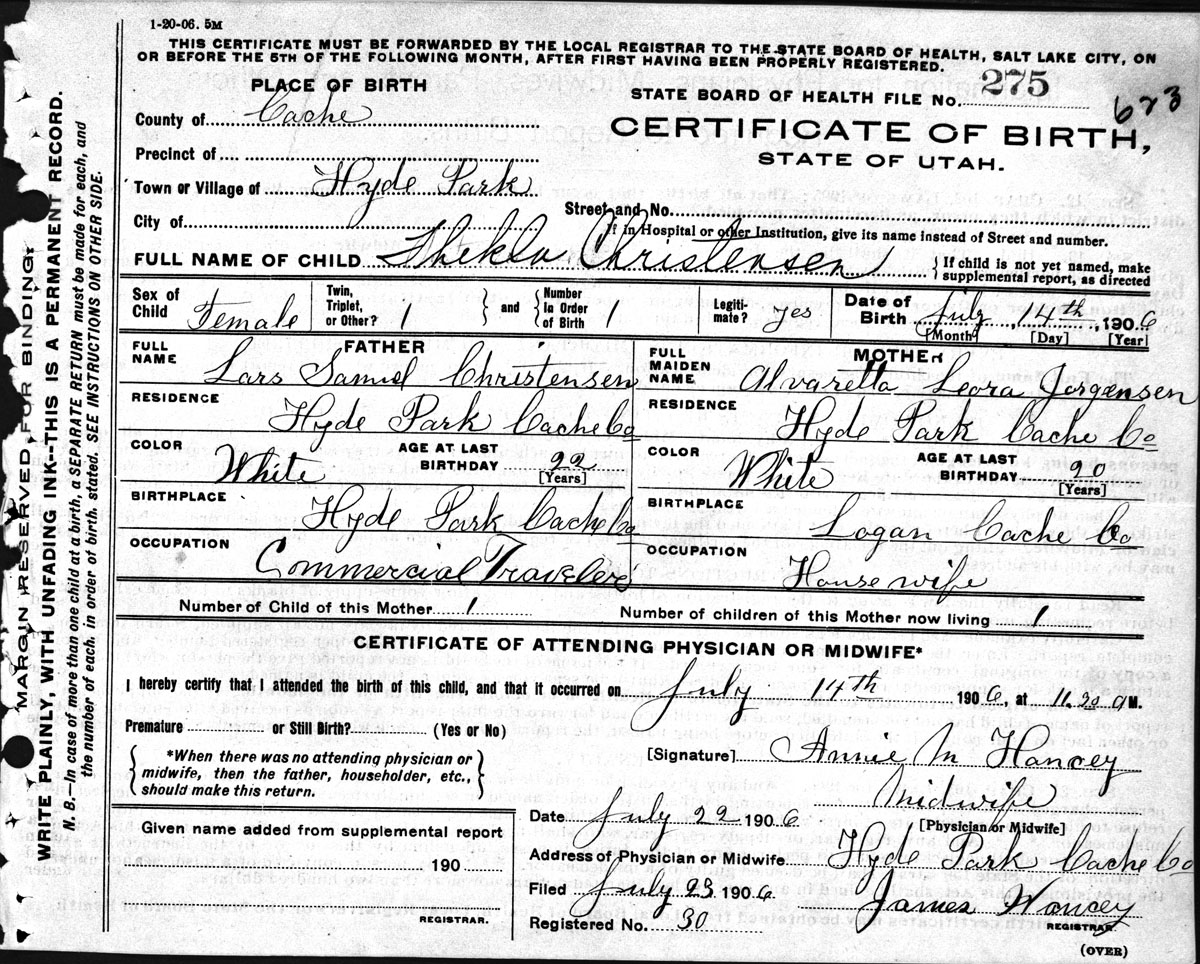 1-20-06. 5M
THIS CERTIFICATE MUST BE FORWARDED BY THE LOCAL REGISTRAR TO THE STATE BOARD OF HEALTH, SALT LAKE CITY, ON
OR BEFORE THE 5TH OF THE FOLLOWING MONTH, AFTER FIRST HAVING BEEN PROPERLY REGISTERED.
PLACE OF BIRTH
STATE BOARD OF HEALTH FILE NO. 275
623
County of Cache
CERTIFICATE OF BIRTH,
STATE OF UTAH.
Precinct of
Town or Village of Hyde Park
Street and No.
City of
If in Hospital or other Institution, give its name instead of Street and number.
FULL NAME OF CHILD Thekla Christensen
{If child is not yet named, make
supplemental report, as directed
Sex of Child Female
Twin, Triplet, or Other? 1
} and {
Number in Order of Birth 1
Legiti-mate? yes
Date of Birth July 14th, 1906
[Month] [Day] [Year]
FATHER
FULL NAME Lars Samuel Christensen
MOTHER
FULL MAIDEN NAME Alvaretta Leora Jorgensen
RESIDENCE Hyde Park Cache Co
RESIDENCE Hyde Park Cache Co
COLOR White
AGE AT LAST BIRTHDAY 22
[Years]
COLOR White
AGE AT LAST BIRTHDAY 20
[Years]
BIRTHPLACE Hyde Park Cache Co
BIRTHPLACE Logan Cache Co
OCCUPATION Commercial Traveler
OCCUPATION House wife
Number of Child of this Mother 1
Number of children of this Mother now living 1
CERTIFICATE OF ATTENDING PHYSICIAN OR MIDWIFE*
I hereby certify that I attended the birth of this child, and that it occurred on July 14th 1906, at 11.20 a M.
Premature or Still Birth? (Yes or No)
{*When there was no attending physician or
midwife, then the father, householder, etc.,
should make this return.}
[Signature] Annie M Hancey
Midwife
[Physician or Midwife]
Date July 22 1906
Address of Physician or Midwife Hyde Park Cache Co
Filed July 23 1906
James Hancey
REGISTRAR.
Registered No. 30
(OVER)
Given name added from supplemental report
190
REGISTRAR.
MARGIN RESERVED FOR BINDING
WRITE PLAINLY, WITH UNFADING INK--THIS IS A PERMANENT RECORD.
N. B. In case of more than one child at a birth, a SEPARATE RETURN must be made for each, and
the number of each, in order of birth, stated. SEE INSTRUCTIONS ON OTHER SIDE.